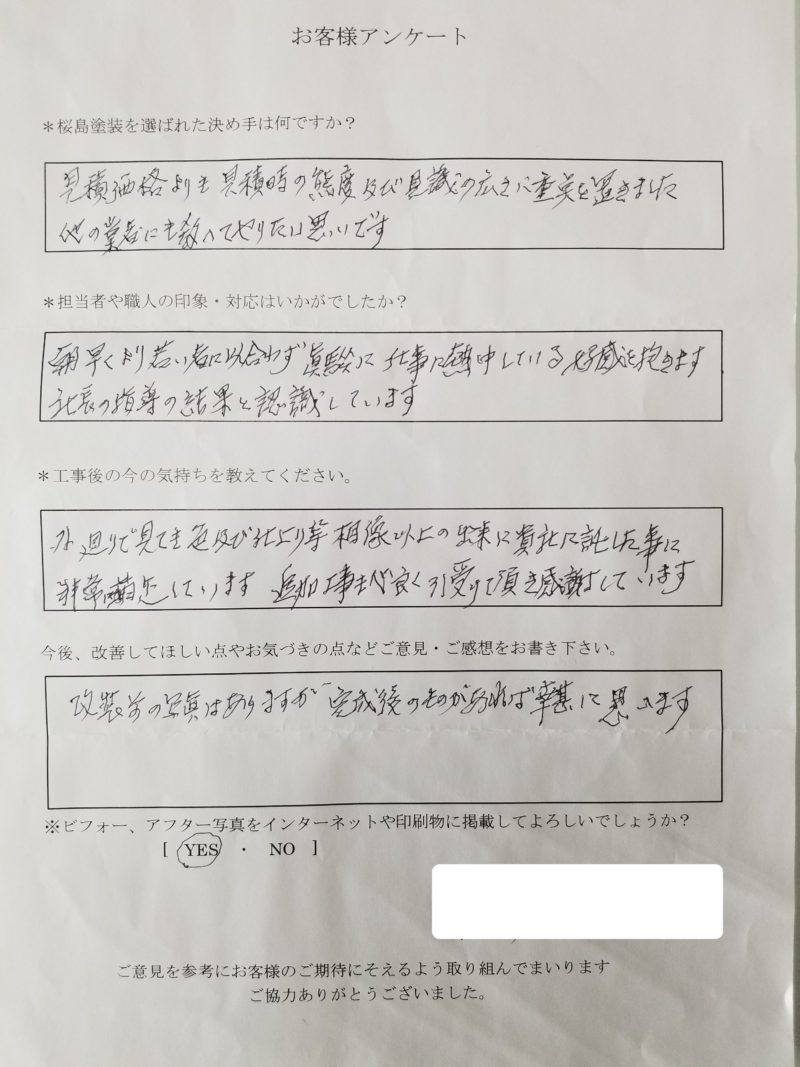 お客様アンケート
＊桜島塗装を選ばれた決め手は何ですか？
見積価格よりも見積時の態度及び見識の広さに重点を置きました
他の業者にも教へてやりたい思いです
＊担当者や職人の印象・対応はいかがでしたか？
朝早くより若い者に似合わず真剣に仕事に熱中している好感を抱きます
社長の指導の結果と認識しています
＊工事後の今の気持ちを教えてください。
外廻りで見ても色及び仕上り等想像以上の出来に貴社に託した事に
非常に満足しています 追加工事も心良く引受けて頂き感謝しています
今後、改善してほしい点やお気づきの点などご意見・ご感想をお書き下さい。
改装前の写真はありますが完成後のものがあれば幸甚に思います
※ビフォー、アフター写真をインターネットや印刷物に掲載してよろしいでしょうか？
[ YES ・ NO ]
ご意見を参考にお客様のご期待にそえるよう取り組んでまいります
ご協力ありがとうございました。